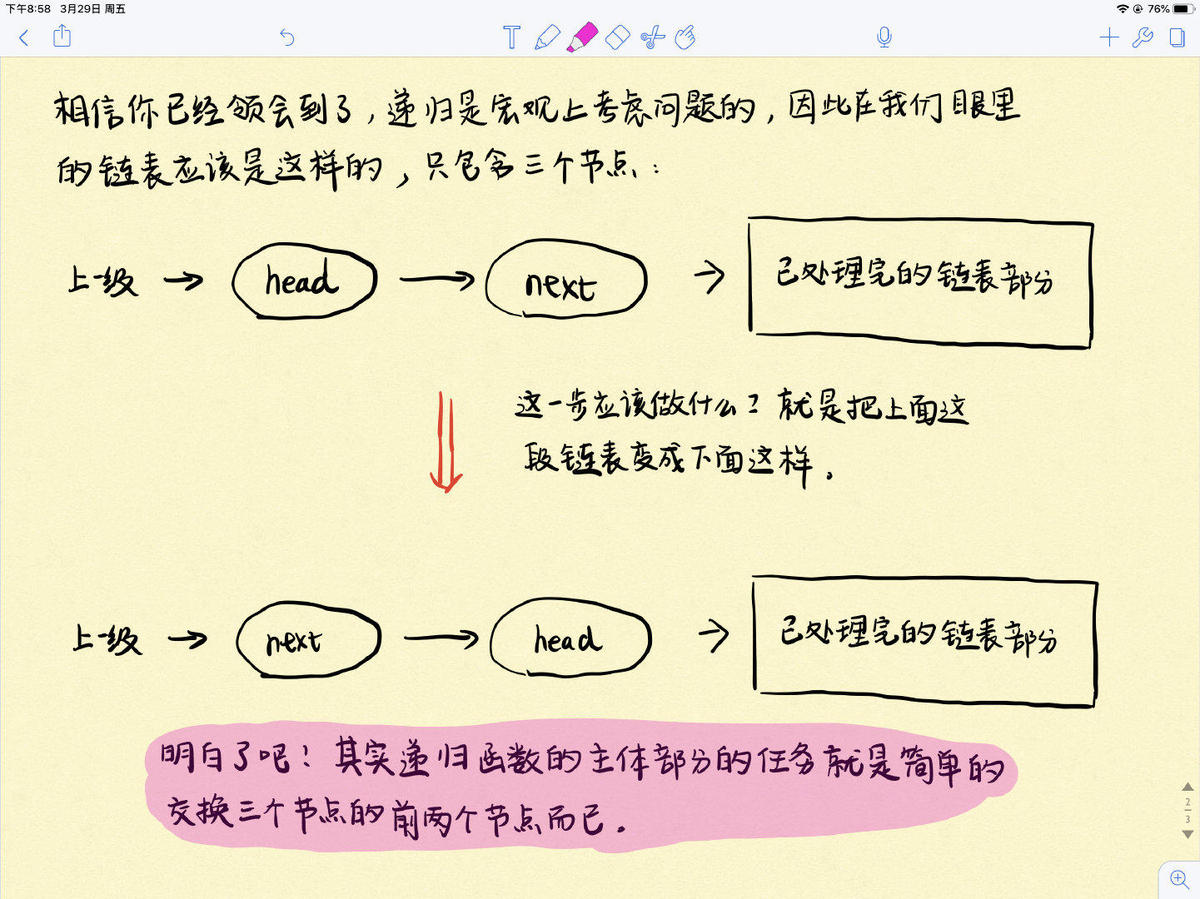 下午8:58 3月29日 周五
76%
相信你已经领会到了，递归是宏观上考虑问题的，因此在我们眼里
的链表应该是这样的，只包含三个节点：
上一级 → head → next → 已处理完的链表部分
这一步应该做什么？就是把上面这
段链表变成下面这样。
上一级 → next → head → 已处理完的链表部分
明白了吧！其实递归函数的主体部分的任务就是简单的
交换三个节点的前两个节点而已。
2
3